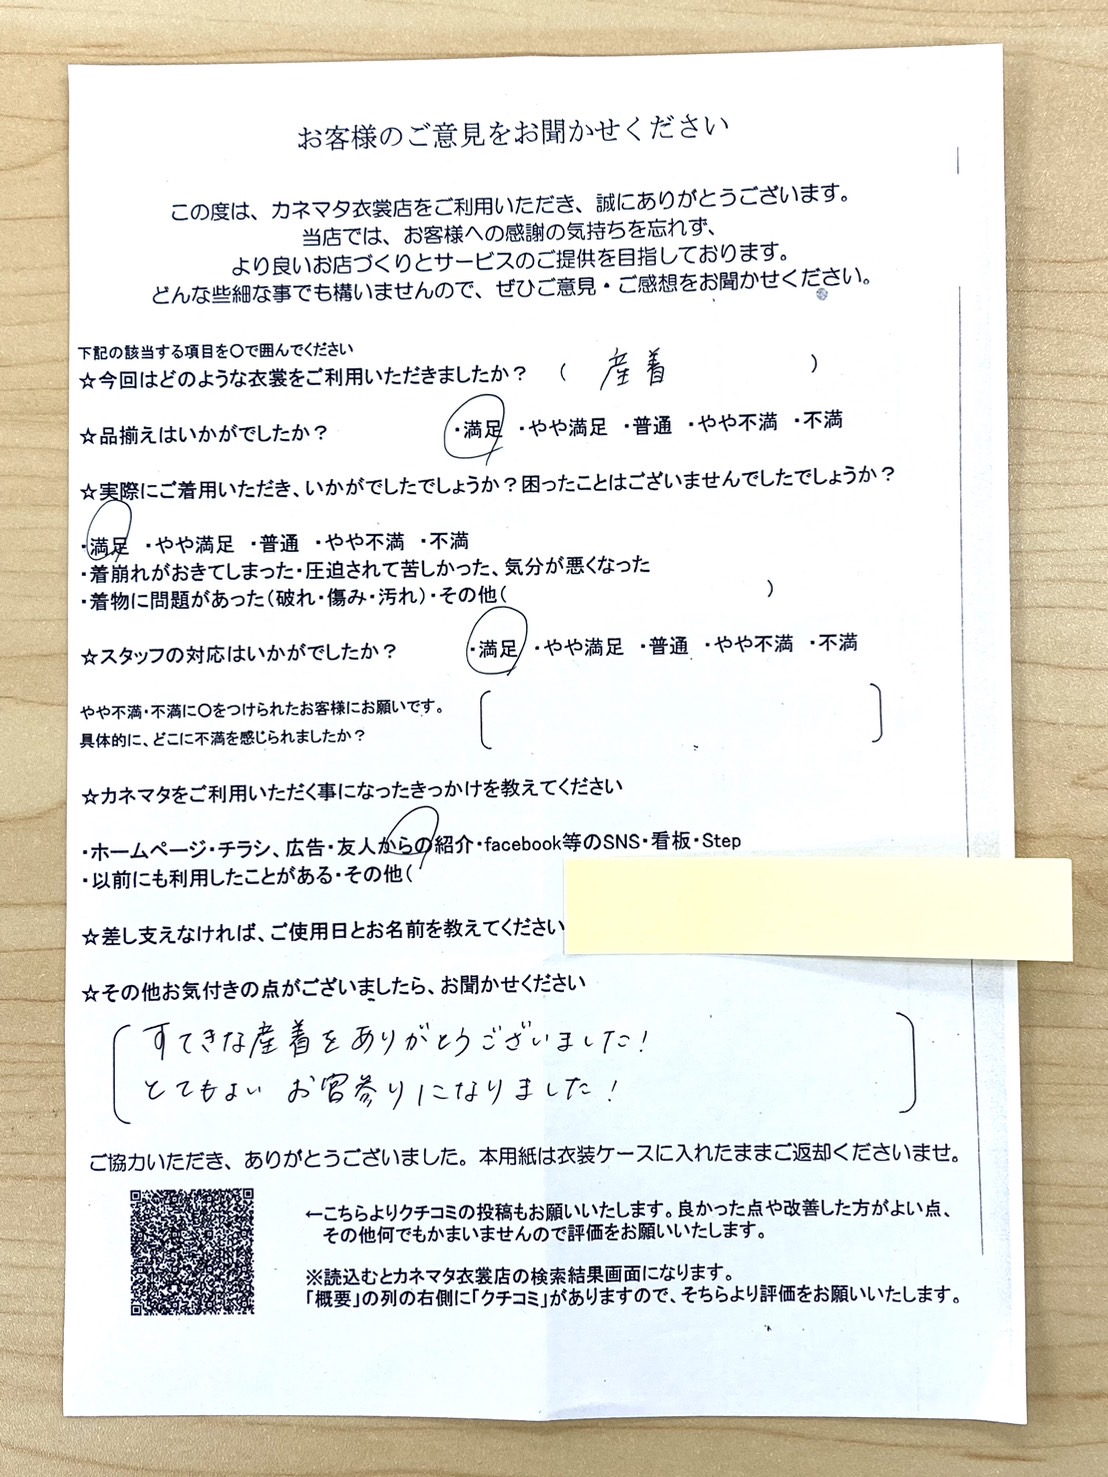 お客様のご意見をお聞かせください
この度は、カネマタ衣裳店をご利用いただき、誠にありがとうございます。
当店では、お客様への感謝の気持ちを忘れず、
より良いお店づくりとサービスのご提供を目指しております。
どんな些細な事でも構いませんので、ぜひご意見・ご感想をお聞かせください。
下記の該当する項目を〇で囲んでください
☆今回はどのような衣裳をご利用いただきましたか？ （ 産着 ）
☆品揃えはいかがでしたか？ ・満足 ・やや満足 ・普通 ・やや不満 ・不満
☆実際にご着用いただき、いかがでしたでしょうか？困ったことはございませんでしたでしょうか？
・満足 ・やや満足 ・普通 ・やや不満 ・不満
・着崩れがおきてしまった・圧迫されて苦しかった、気分が悪くなった
・着物に問題があった（破れ・傷み・汚れ）・その他（ ）
☆スタッフの対応はいかがでしたか？ ・満足 ・やや満足 ・普通 ・やや不満 ・不満
やや不満・不満に〇をつけられたお客様にお願いです。
具体的に、どこに不満を感じられましたか？
☆カネマタをご利用いただく事になったきっかけを教えてください
・ホームページ・チラシ、広告・友人からの紹介・facebook等のSNS・看板・Step
・以前にも利用したことがある・その他（
☆差し支えなければ、ご使用日とお名前を教えてください
☆その他お気付きの点がございましたら、お聞かせください
すてきな産着をありがとうございました！
とてもよい お宮参りになりました！
ご協力いただき、ありがとうございました。本用紙は衣装ケースに入れたままご返却くださいませ。
←こちらよりクチコミの投稿もお願いいたします。良かった点や改善した方がよい点、
その他何でもかまいませんので評価をお願いいたします。
※読込むとカネマタ衣裳店の検索結果画面になります。
「概要」の列の右側に「クチコミ」がありますので、そちらより評価をお願いいたします。